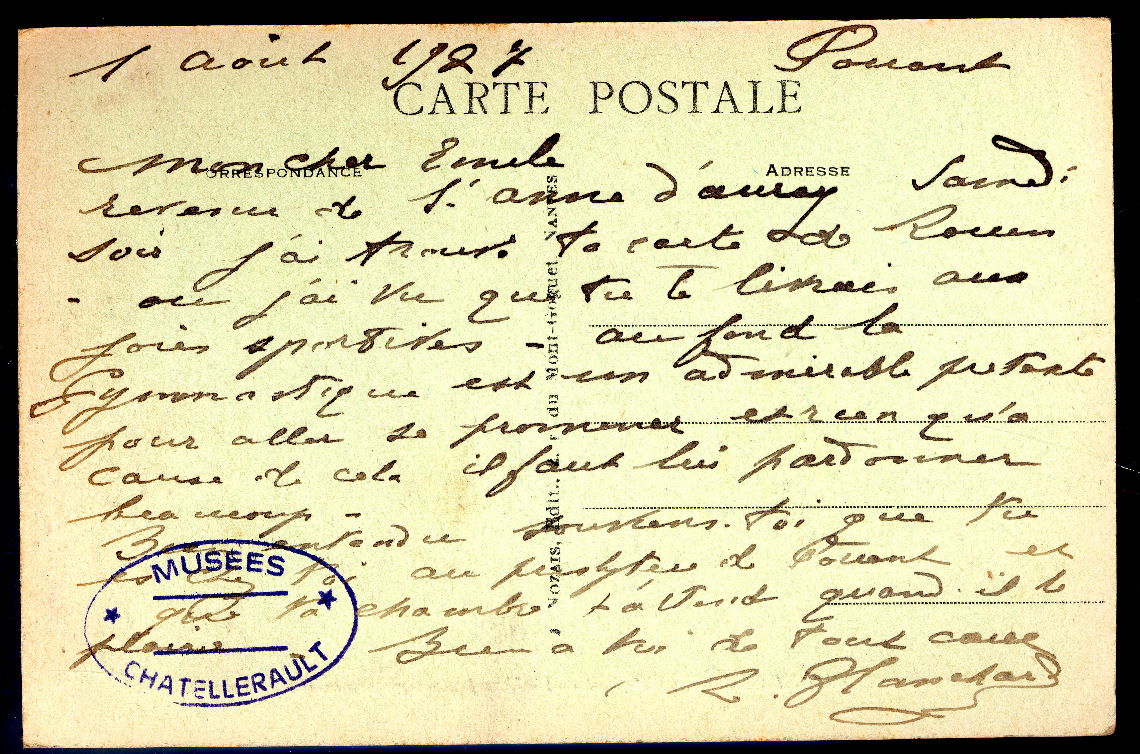 1 août 1927 Pouant
CARTE POSTALE
CORRESPONDANCE ADRESSE
Mon cher Emile
revenu de St. anne d'auray Samedi
soir j'ai trouvé ta carte de Rouen
- ou j'ai vu que tu te livrais aux
joies sportives - au fond la
Gymnastique est un admirable pretexte
pour aller se promener et rien qu'à
cause de cela il faut lui pardonner
beaucoup -
Bien entendu souviens-toi que tu
es chez toi au presbytère de Pouant et
que ta chambre t'attend quand il te
plaira Bien à toi de tout coeur
Blanchard
NOZAIS, Edit., du Mont-Goguet NANTES
MUSEES
CHATELLERAULT